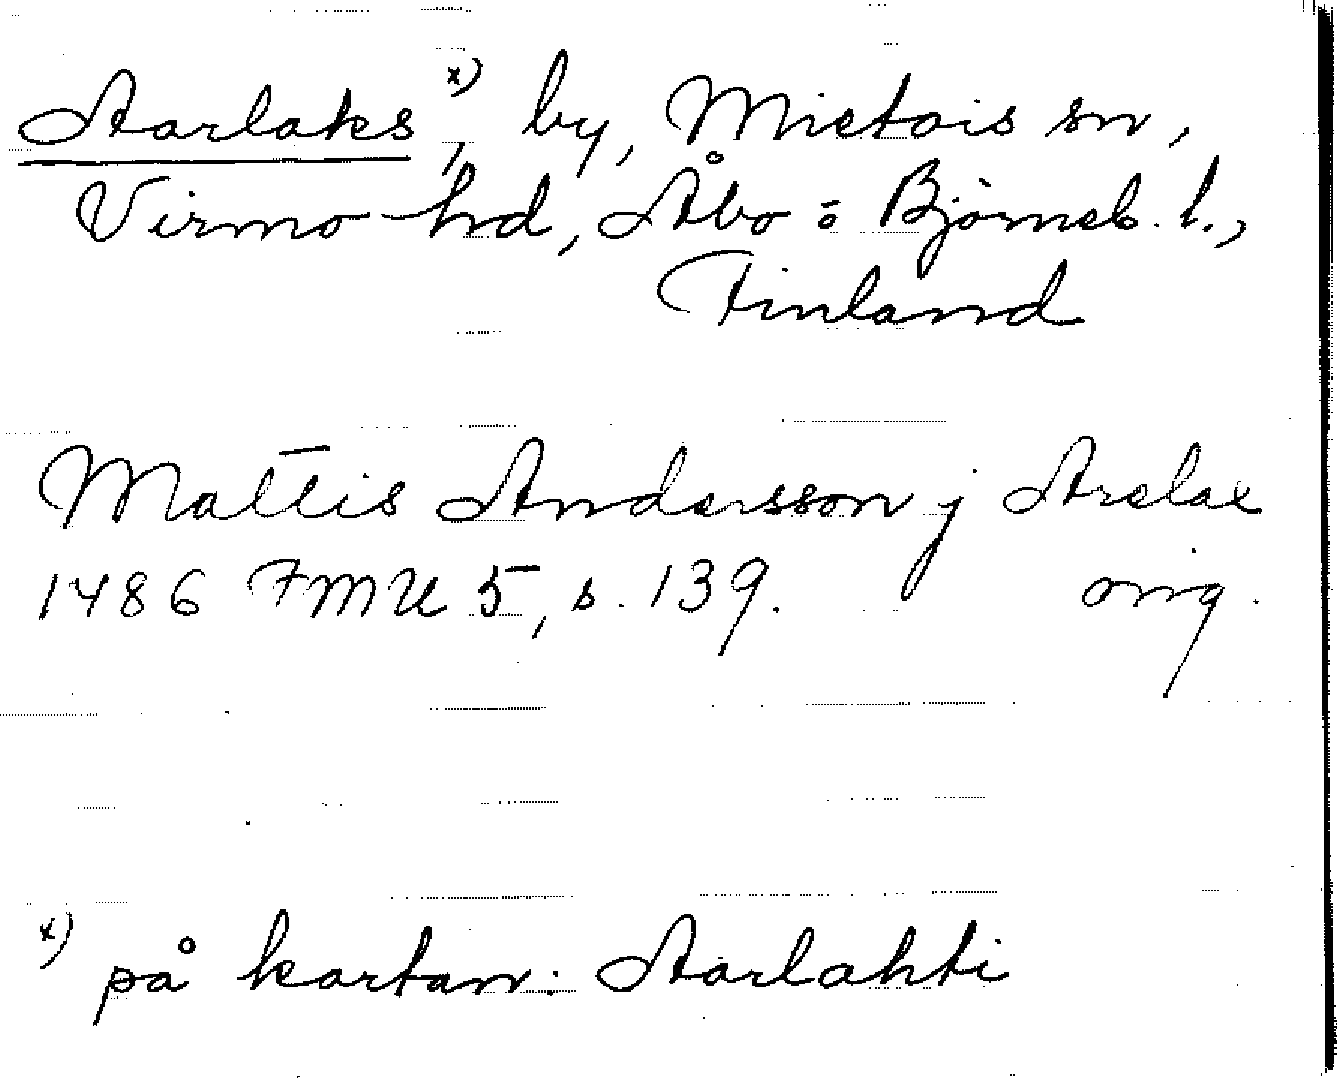 Aarlaks x), by, Mietois sn,
Virmo hd, Åbo o Björneb. l.,
Finland
Mattis Andersson j Arelax
1486 FMU 5, s. 139. orig.
x) på kartan: Aarlahti